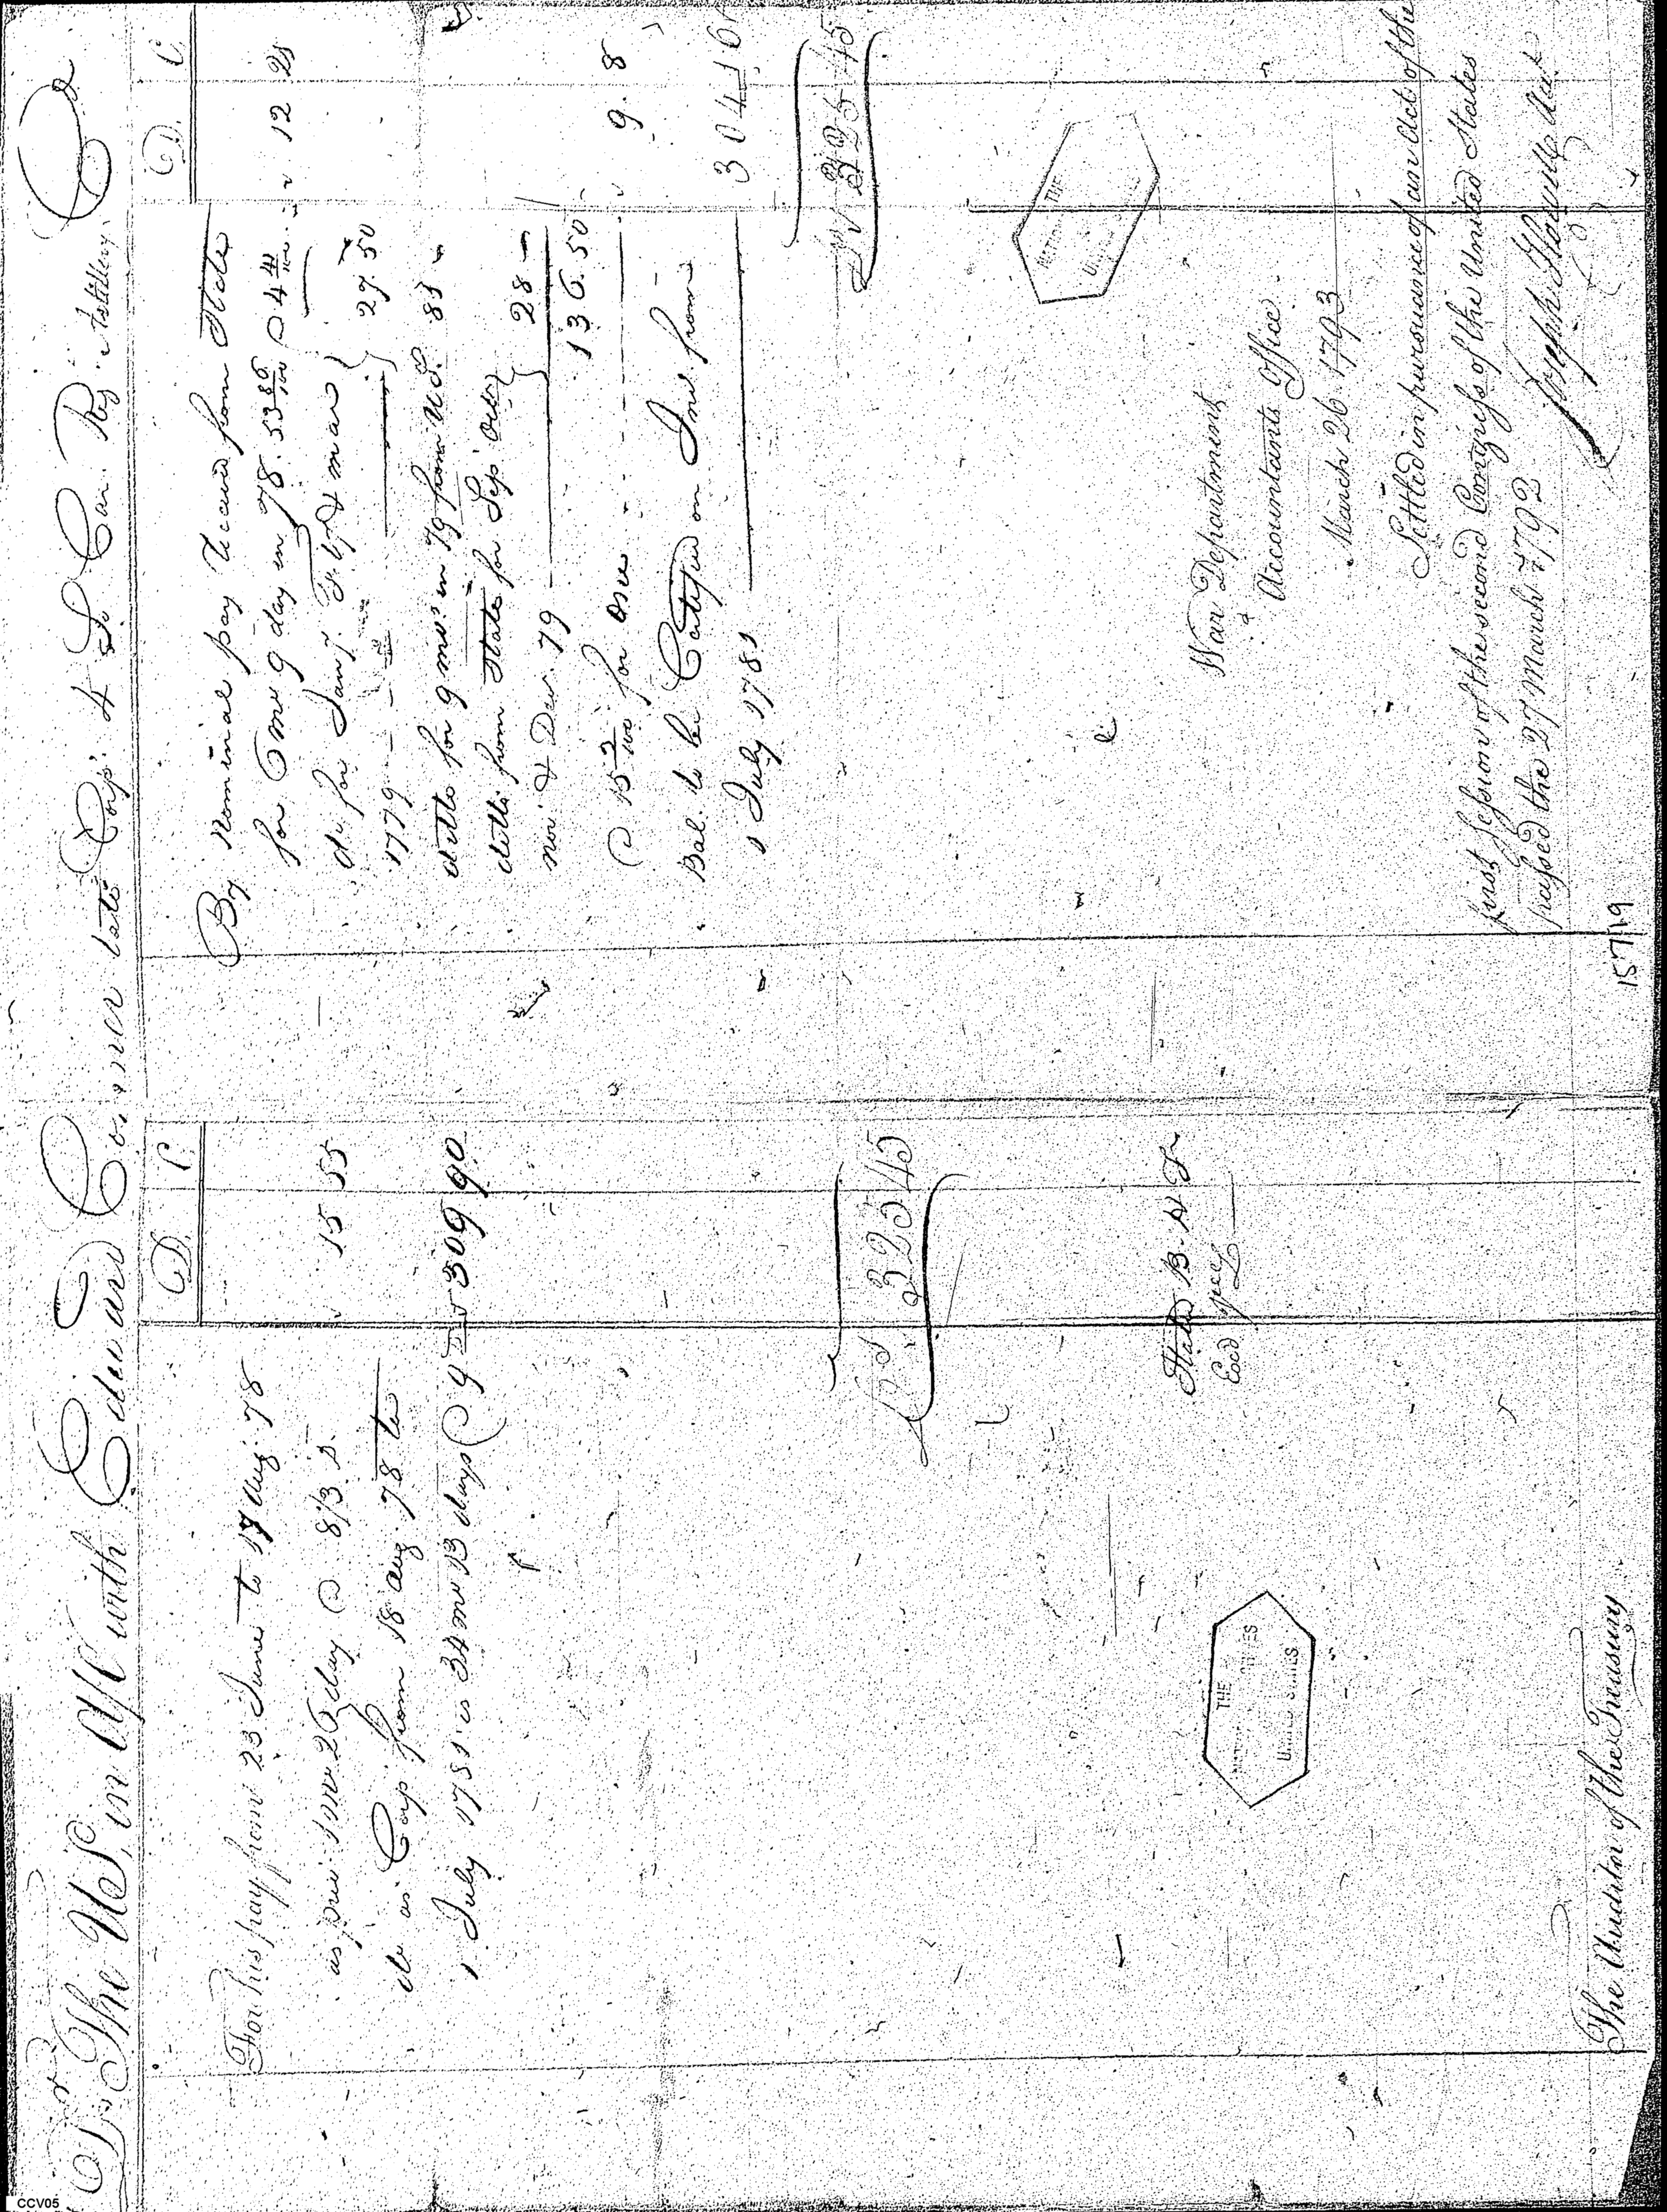 Dr The U S, in A/C with Edward Conner late Corp. 4 So Car. Reg. Artillery. Cr
D. C.
For his pay from 23 June to 17 Aug 78
as pri 1 mo 26 day @ 8 1/3 D. 15 55
do as Corp from 18 Aug. 78 to
1 July 1781 is 34 mo 13 days @ 9 309 90
Ds. 325 45
Stated B. H. T.
Exd
THE
UNITED STATES
The Auditor of the Treasury
D. C.
By Nominal pay Received from State
for 6 mo 9 day in 78. 53 86/100 @ 4 12 21
do for Jany. Feby & mar
1779 27.50
ditto for 9 mos in 79 from U S. 81
ditto from State for Sep Octr
nov. & Decr. 79 28
136.50
@ 15 for one 9. 8
Bal. to be Certified on Int. from
1 July 1781 304 16
Ds 325 45
THE
War Department
Accountants Office.
March 26 1793
Settled in pursuance of an Act of the
first Session of the second Congress of the United States
passed the 27 March 1792
Joseph Howell Act
15719
CCV05